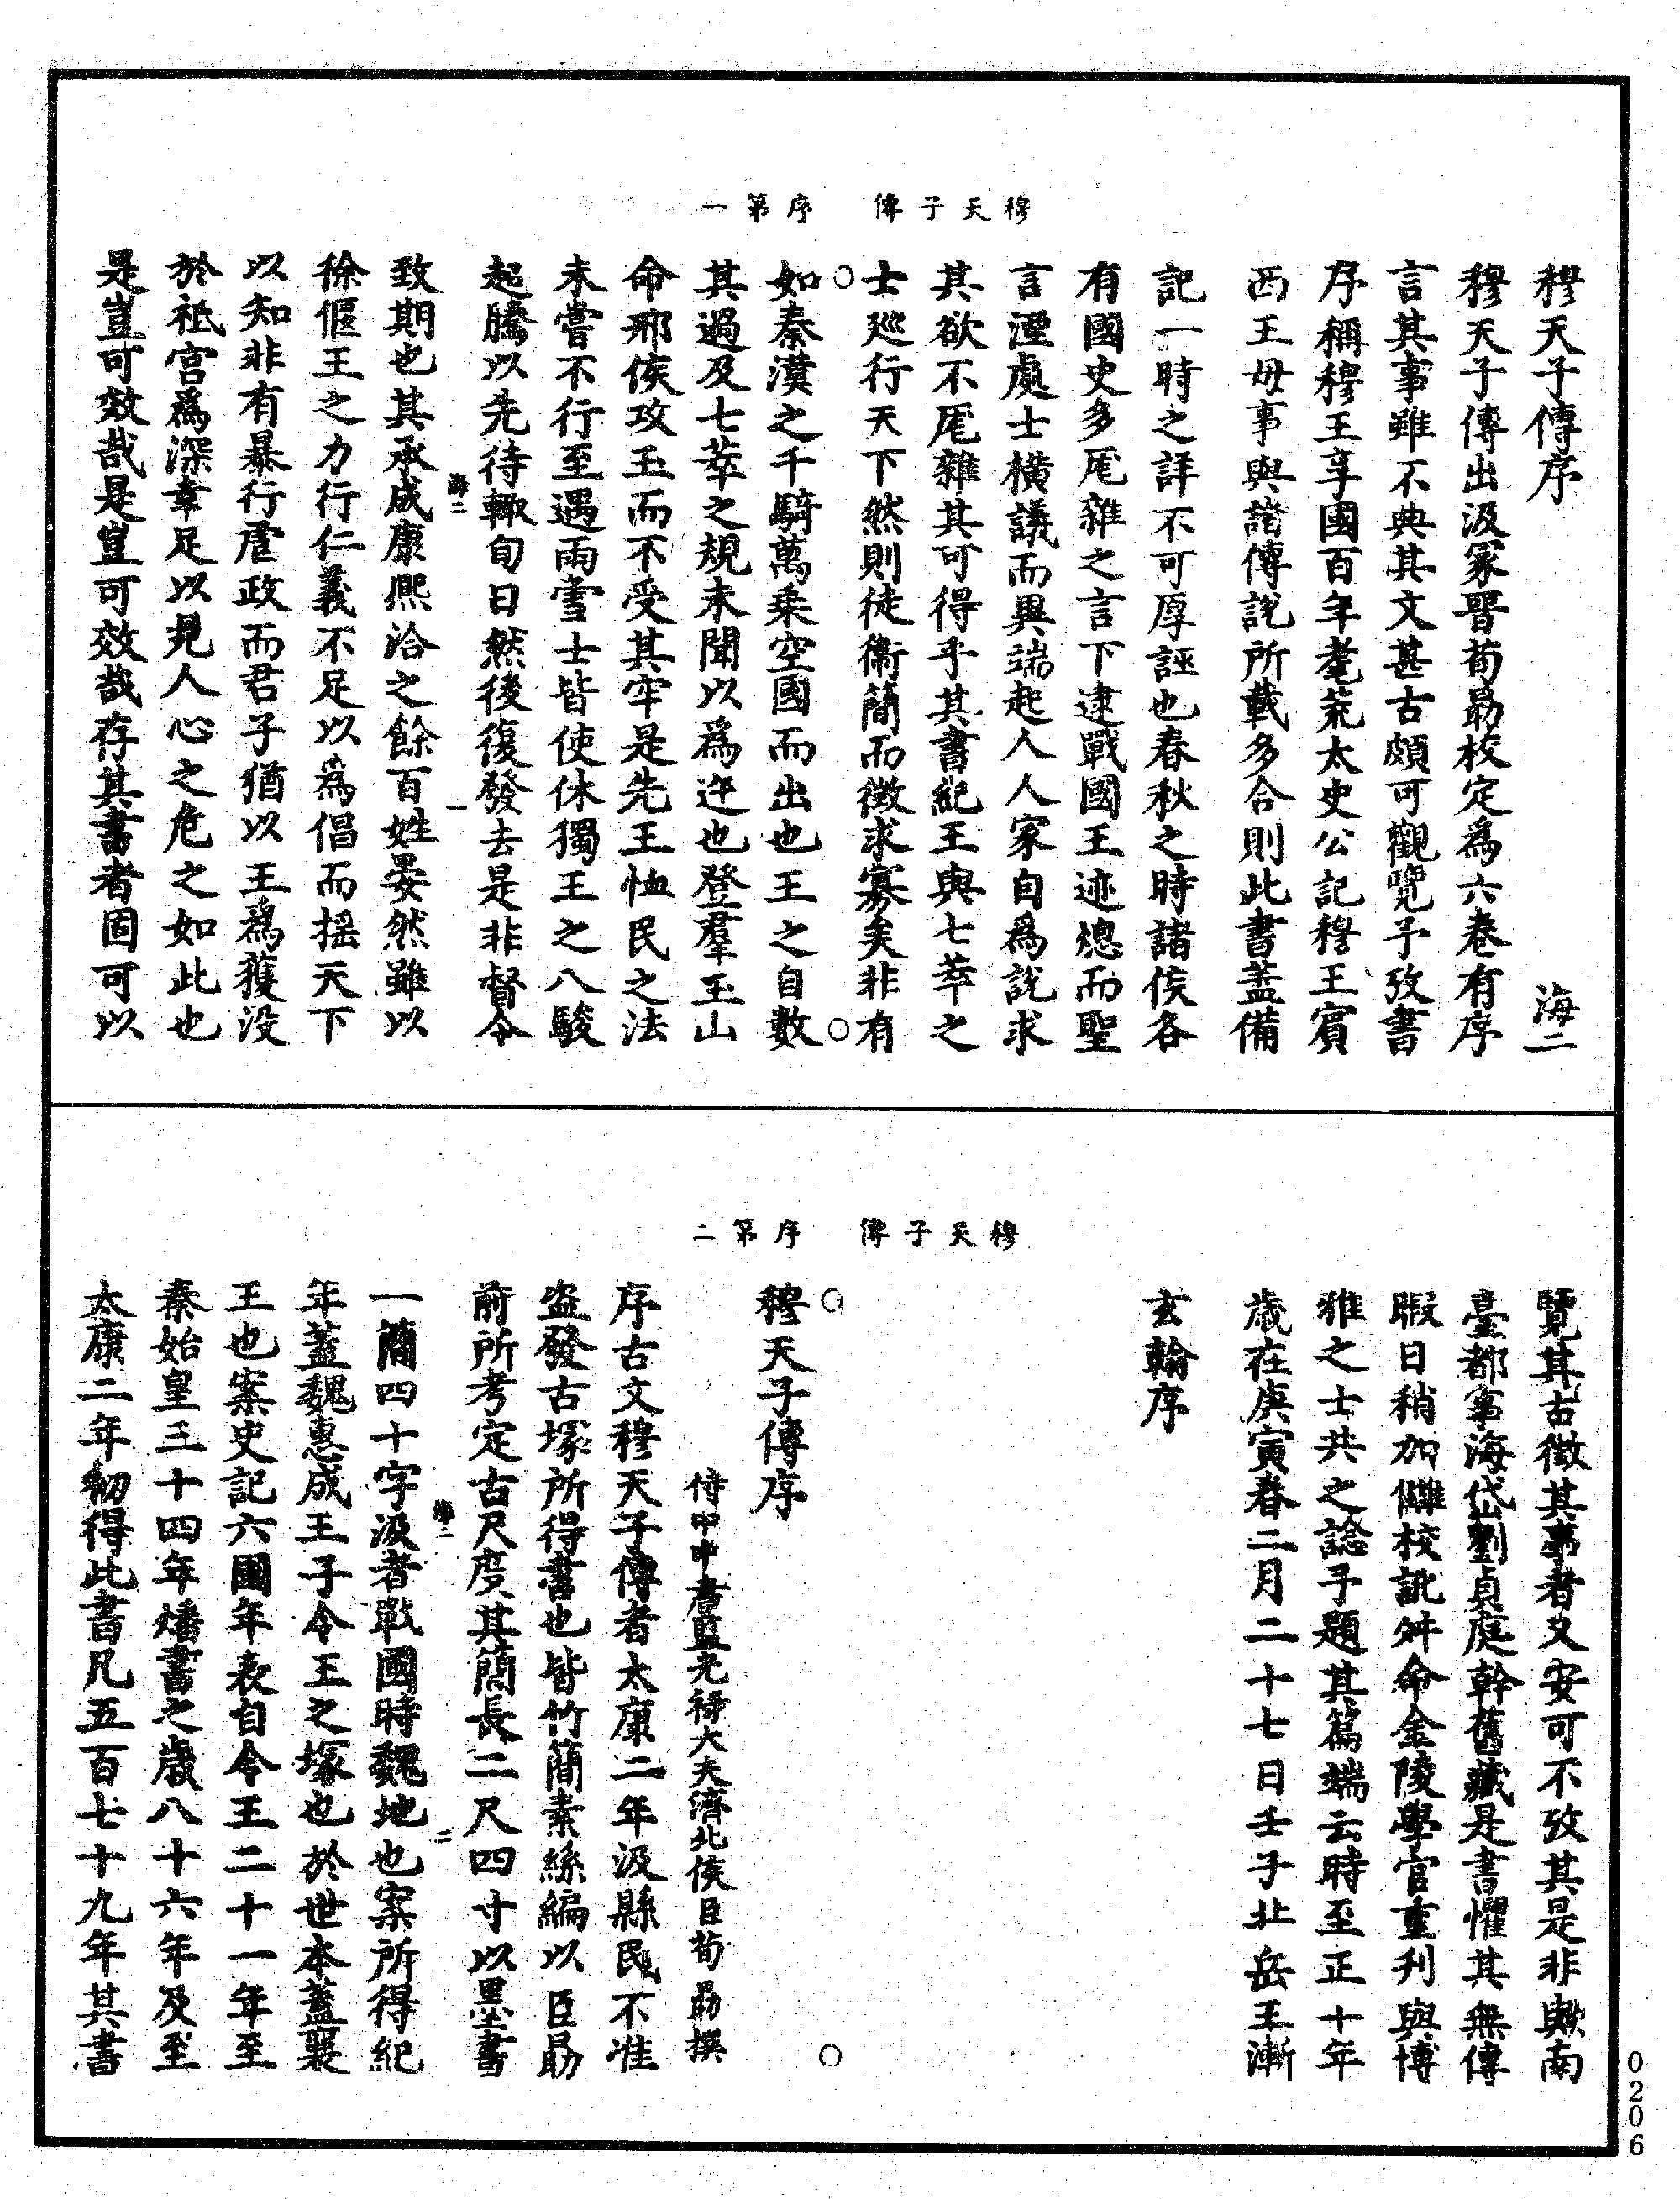 穆天子傳　序第一
穆天子傳序　海二
穆天子傳出汲冢晉荀勗校定爲六卷有序
言其事雖不典其文甚古頗可觀覽予攷書
序稱穆王享國百年耄荒太史公記穆王賓
西王母事與諸傳說所載多合則此書蓋備
記一時之詳不可厚誣也春秋之時諸侯各
有國史多厖雜之言下逮戰國王迹熄而聖
言湮處士橫議而異端起人人家自爲說求
其欲不厖雜其可得乎其書紀王與七萃之
士巡行天下然則徒衛簡而徵求寡矣非有
如秦漢之千騎萬乘空國而出也王之自數
其過及七萃之規未聞以爲迕也登羣玉山
命邢侯攻玉而不受其牢是先王恤民之法
未嘗不行至遇雨雪士皆使休獨王之八駿
起騰以先待輙旬日然後復發去是非督令
海二　一
致期也其承成康熙洽之餘百姓晏然雖以
徐偃王之力行仁義不足以爲倡而搖天下
以知非有暴行虐政而君子猶以王爲獲沒
於祗宮爲深幸足以見人心之危之如此也
是豈可效哉是豈可效哉存其書者固可以
穆天子傳　序第二
覽其古徵其事者又安可不攷其是非歟南
臺都事海岱劉貞庭幹舊藏是書懼其無傳
暇日稍加讎校訛舛命金陵學官重刋與博
雅之士共之諗予題其篇端云時至正十年
歲在庚寅春二月二十七日壬子北岳王漸
玄翰序
穆天子傳序
侍中中書監光祿大夫濟北侯臣荀勗撰
序古文穆天子傳者太康二年汲縣民不准
盜發古塚所得書也皆竹簡素絲編以臣勗
前所考定古尺度其簡長二尺四寸以墨書
海二　二
一簡四十字汲者戰國時魏地也案所得紀
年蓋魏惠成王子令王之塚也於世本蓋襄
王也案史記六國年表自令王二十一年至
秦始皇三十四年燔書之歲八十六年及至
太康二年初得此書凡五百七十九年其書
0206